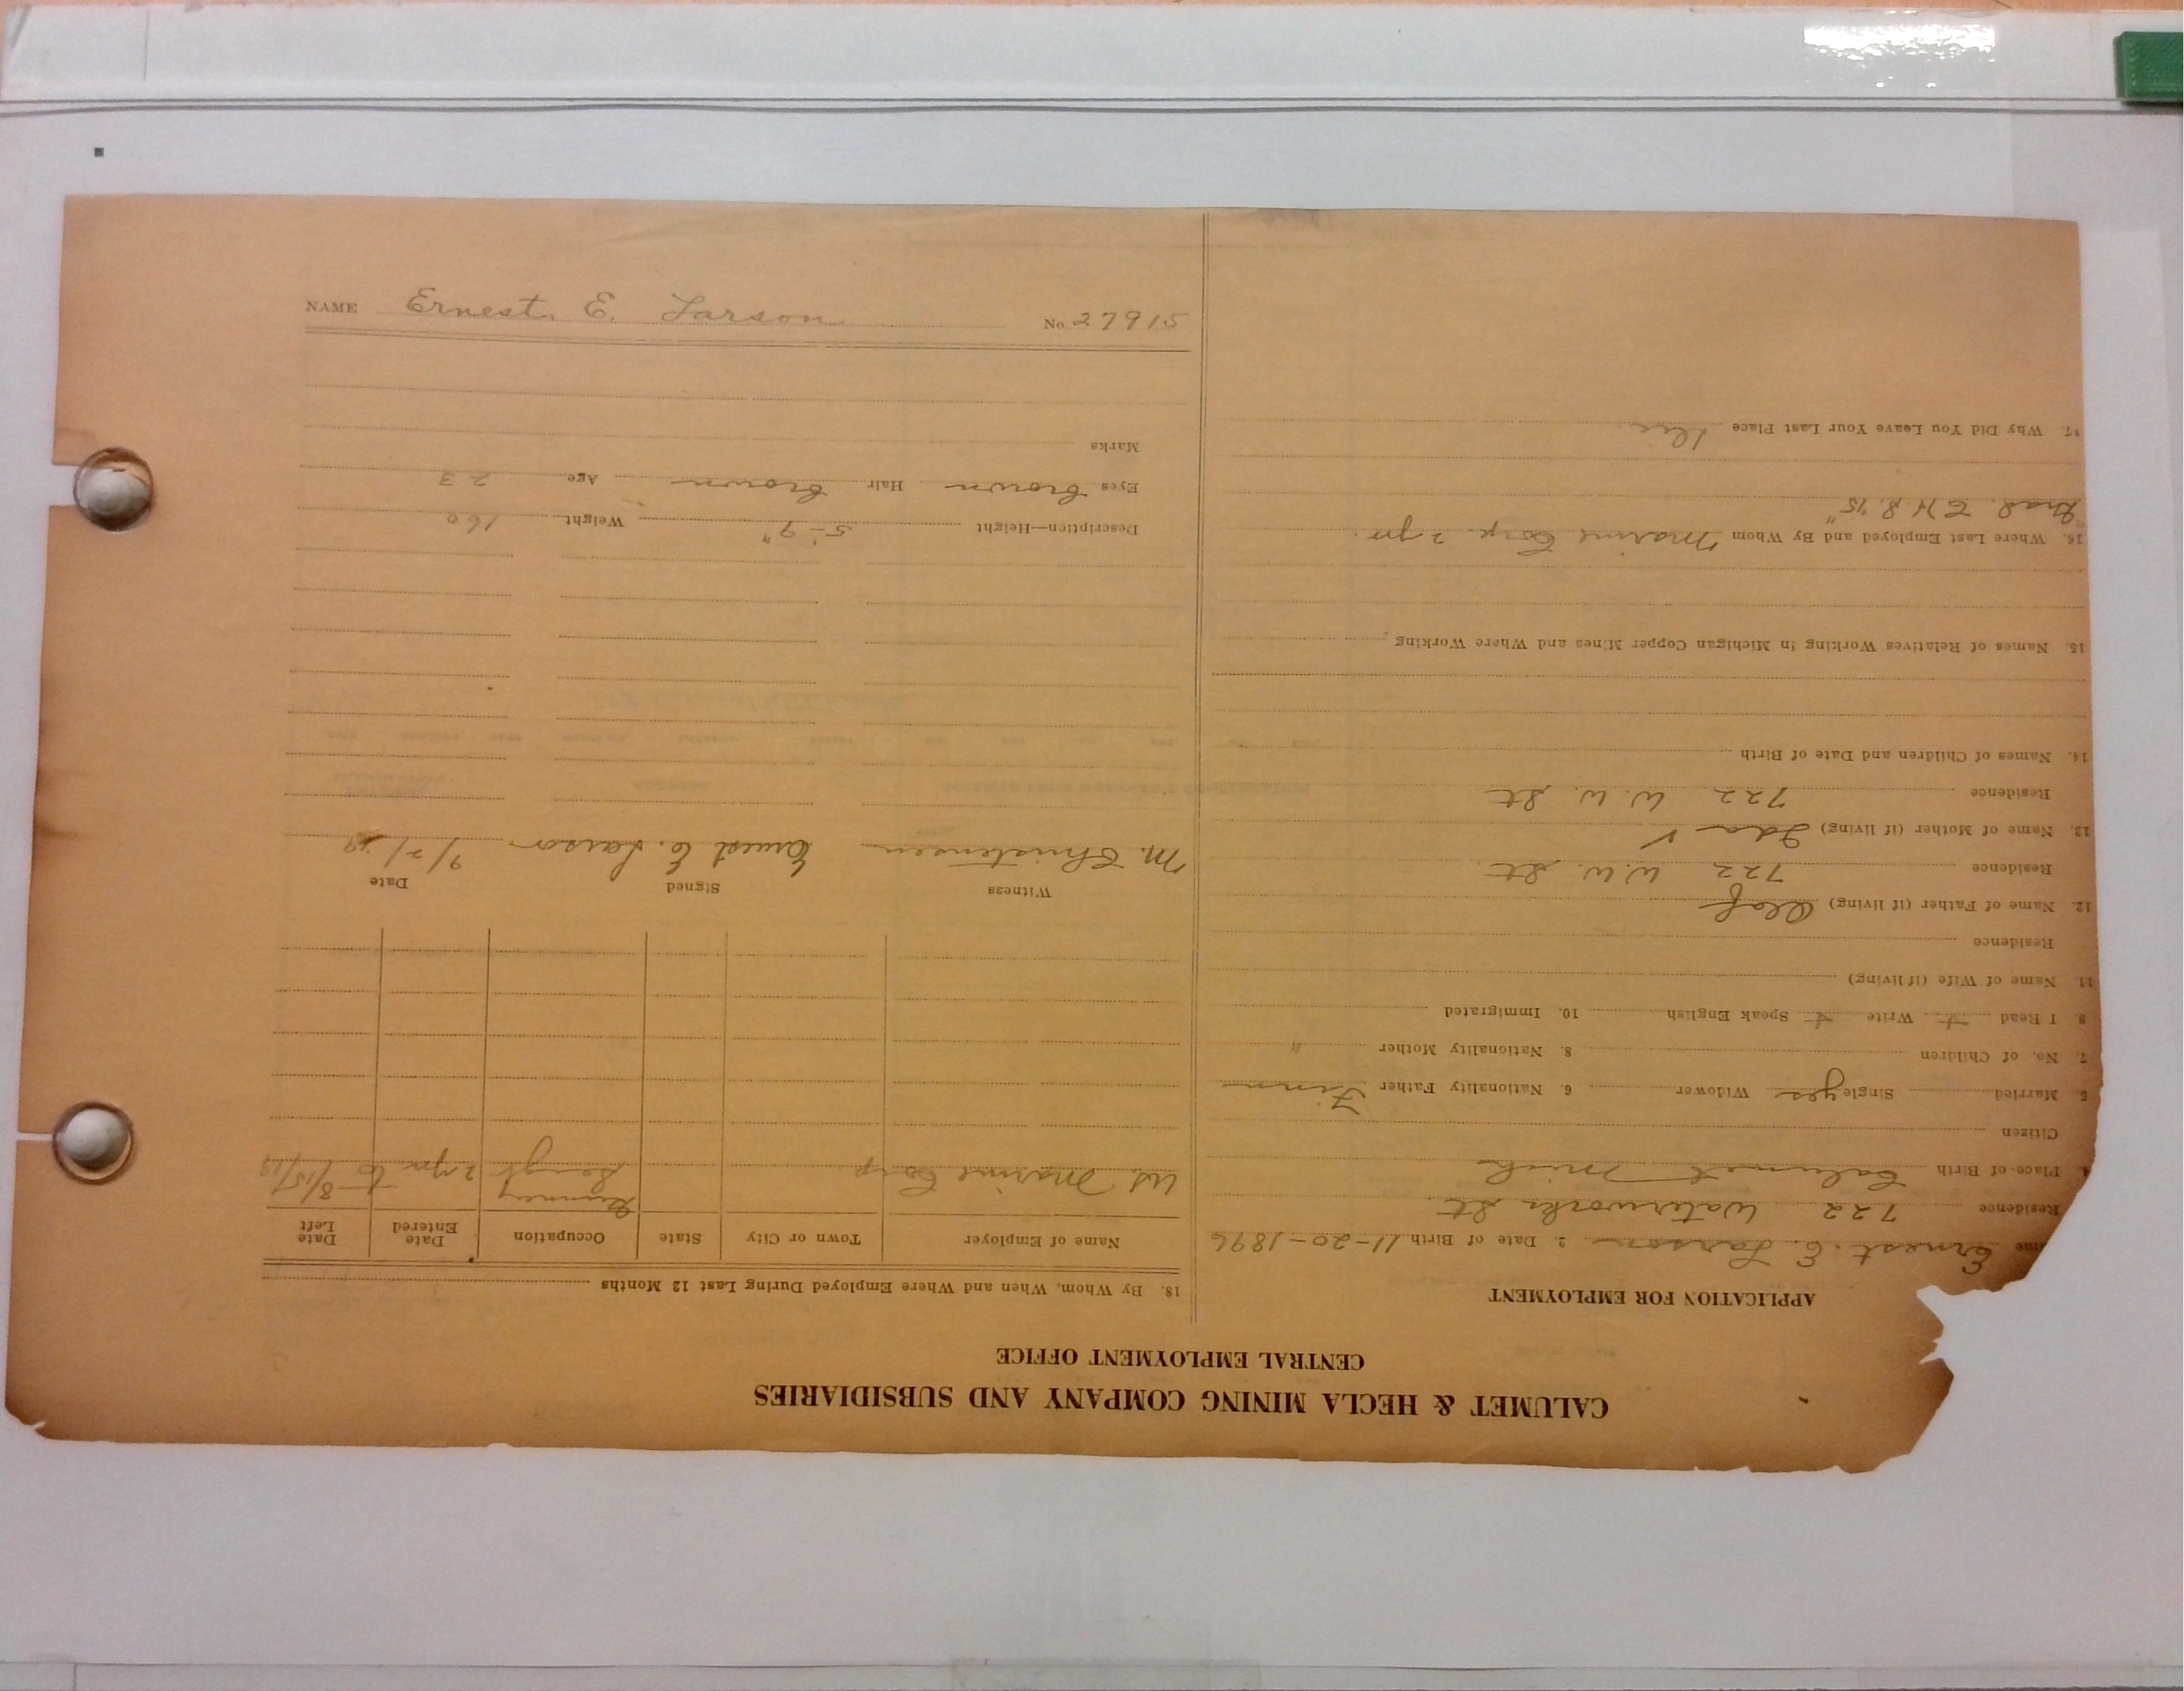 CALUMET & HECLA MINING COMPANY AND SUBSIDIARIES
CENTRAL EMPLOYMENT OFFICE
APPLICATION FOR EMPLOYMENT
me Ernest. E. Larson 2. Date of Birth 11-20-1896
Residence 722 Waterworks St.
4. Place of Birth Calumet Mich
Citizen
5. Married Single yes Widower 6. Nationality Father Finn
7. No. of Children 8. Nationality Mother "
9. I Read + Write + Speak English 10. Immigrated
11. Name of Wife (if living)
Residence
12. Name of Father (if living) Olaf
Residence 722 W.W. St.
13. Name of Mother (if living) Ida V
Residence 722 W. W. St
14. Names of Children and Date of Birth
15. Names of Relatives Working in Michigan Copper Mines and Where Working
16. Where Last Employed and By Whom Marine Corp. 2 yr.
Grad. C.H.S. '15"
17. Why Did You Leave Your Last Place
18. By Whom, When and Where Employed During Last 12 Months
Name of Employer Town or City State Occupation Date Entered Date Left
US Marine Corp Gunnery Sergt 2 yrs to 8/15/19
Witness Signed Date
M. Christensen Ernest E. Larson 9/2/19
Description—Height 5-9" Weight 160
Eyes brown Hair brown Age 23
Marks
NAME Ernest. E. Larson No. 27915